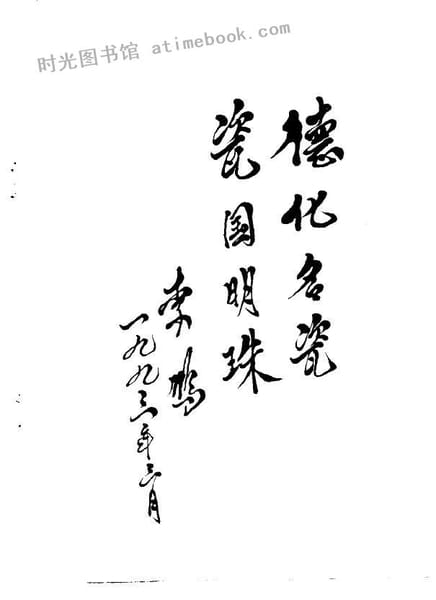 时光图书馆 atimebook.com
德化名瓷
瓷国明珠
李鹏
一九九三年三月